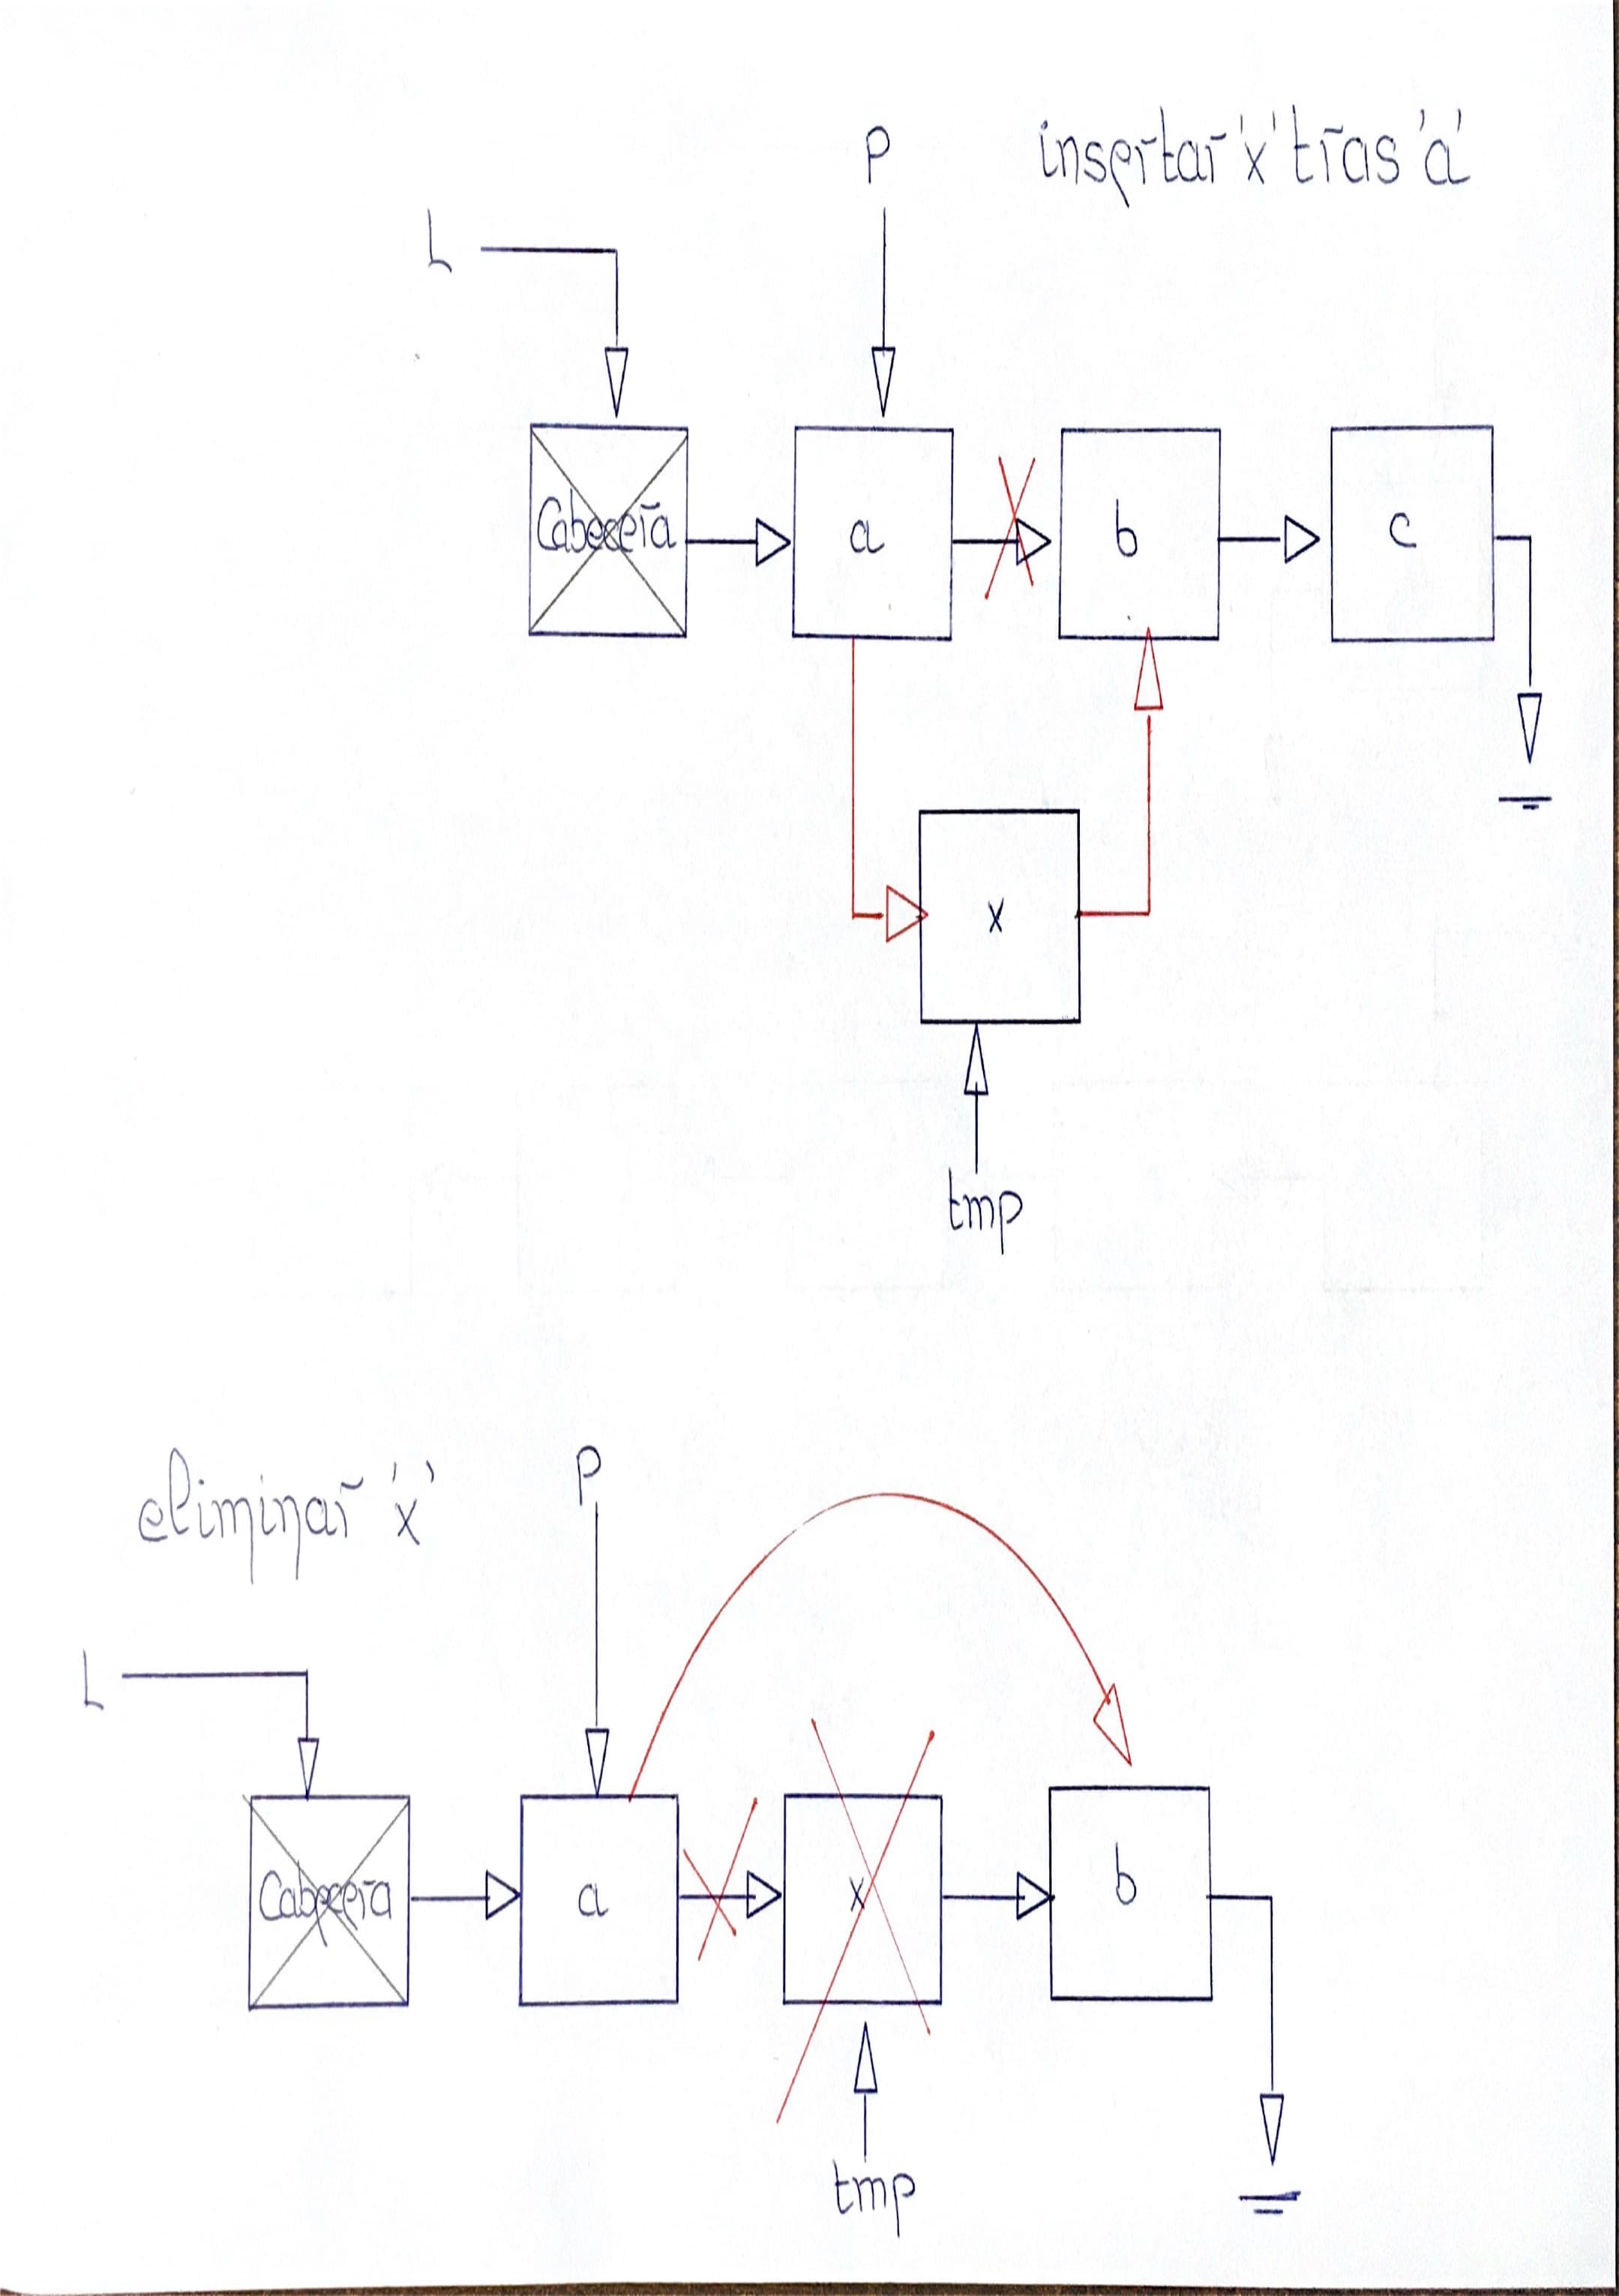 P
insertar 'x' tras 'a'
L
Cabecera
a
b
c
x
tmp
eliminar 'x'
P
L
Cabecera
a
x
b
tmp